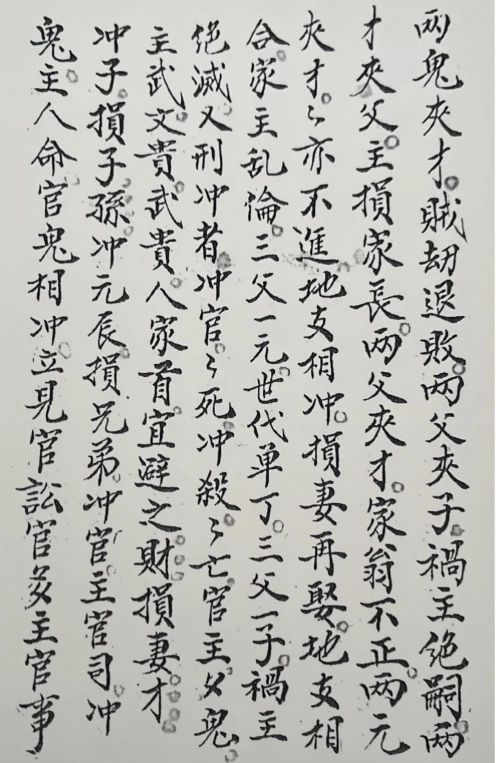 两鬼夹才。賊劫退敗。两父夹子。禍主绝嗣。两
才夹父。主損家長。两父夹才。家翁不正。两元
夹才。々亦不進。地支相冲。損妻再娶。地支相
合。家主乱倫。三父一元。世代单丁。三父一子。禍主
绝滅。又刑冲者。冲官々死。冲殺々亡。官主文。鬼
主武。文貴武貴人家首宜避之。財損妻。才
冲子。損子孫。冲元辰。損兄弟。冲官主官司。冲
鬼主人命。官鬼相冲。立見官訟。官爻主官事